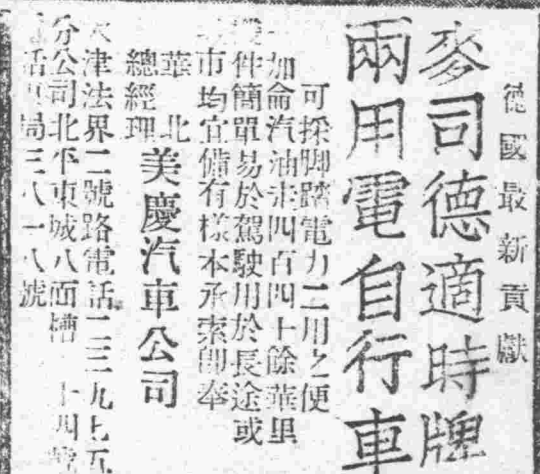 德國最新貢獻
麥司德適時牌
兩用電自行車
可採脚踏電力二用之便
加侖汽油走四百四十餘華里
件簡單易於駕駛用於長途或
市均宜備有樣本承索即奉
華北
總經理
美慶汽車公司
津法界二號路電話二三九七五
分公司北平東城八面槽 十四號
話東局三八一八號